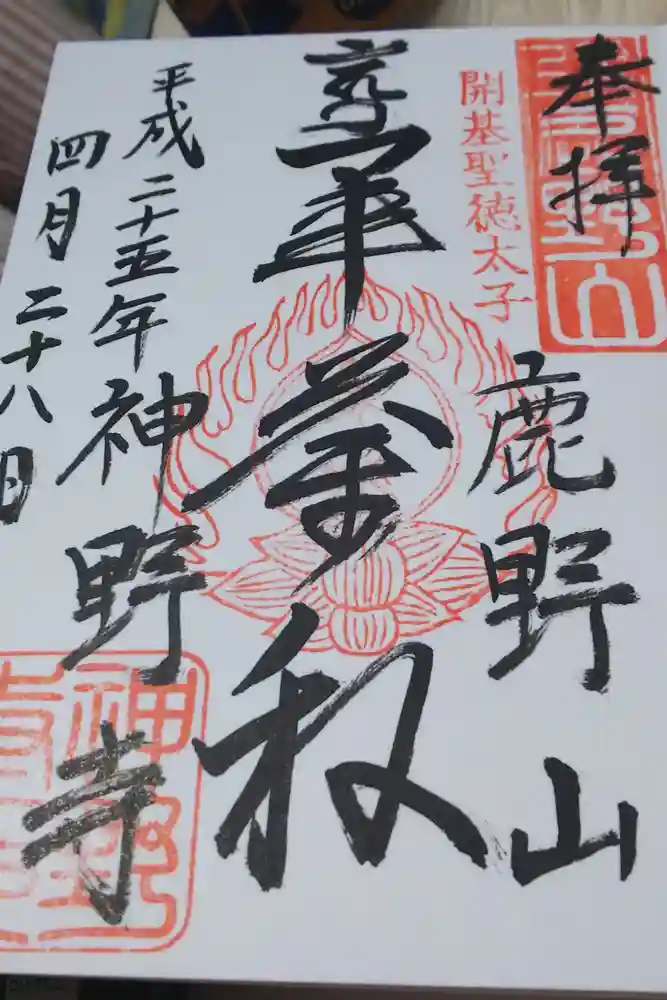 奉拝
鹿野山
開基聖徳太子
軍荼利
平成二十五年
四月二十八日
神野寺